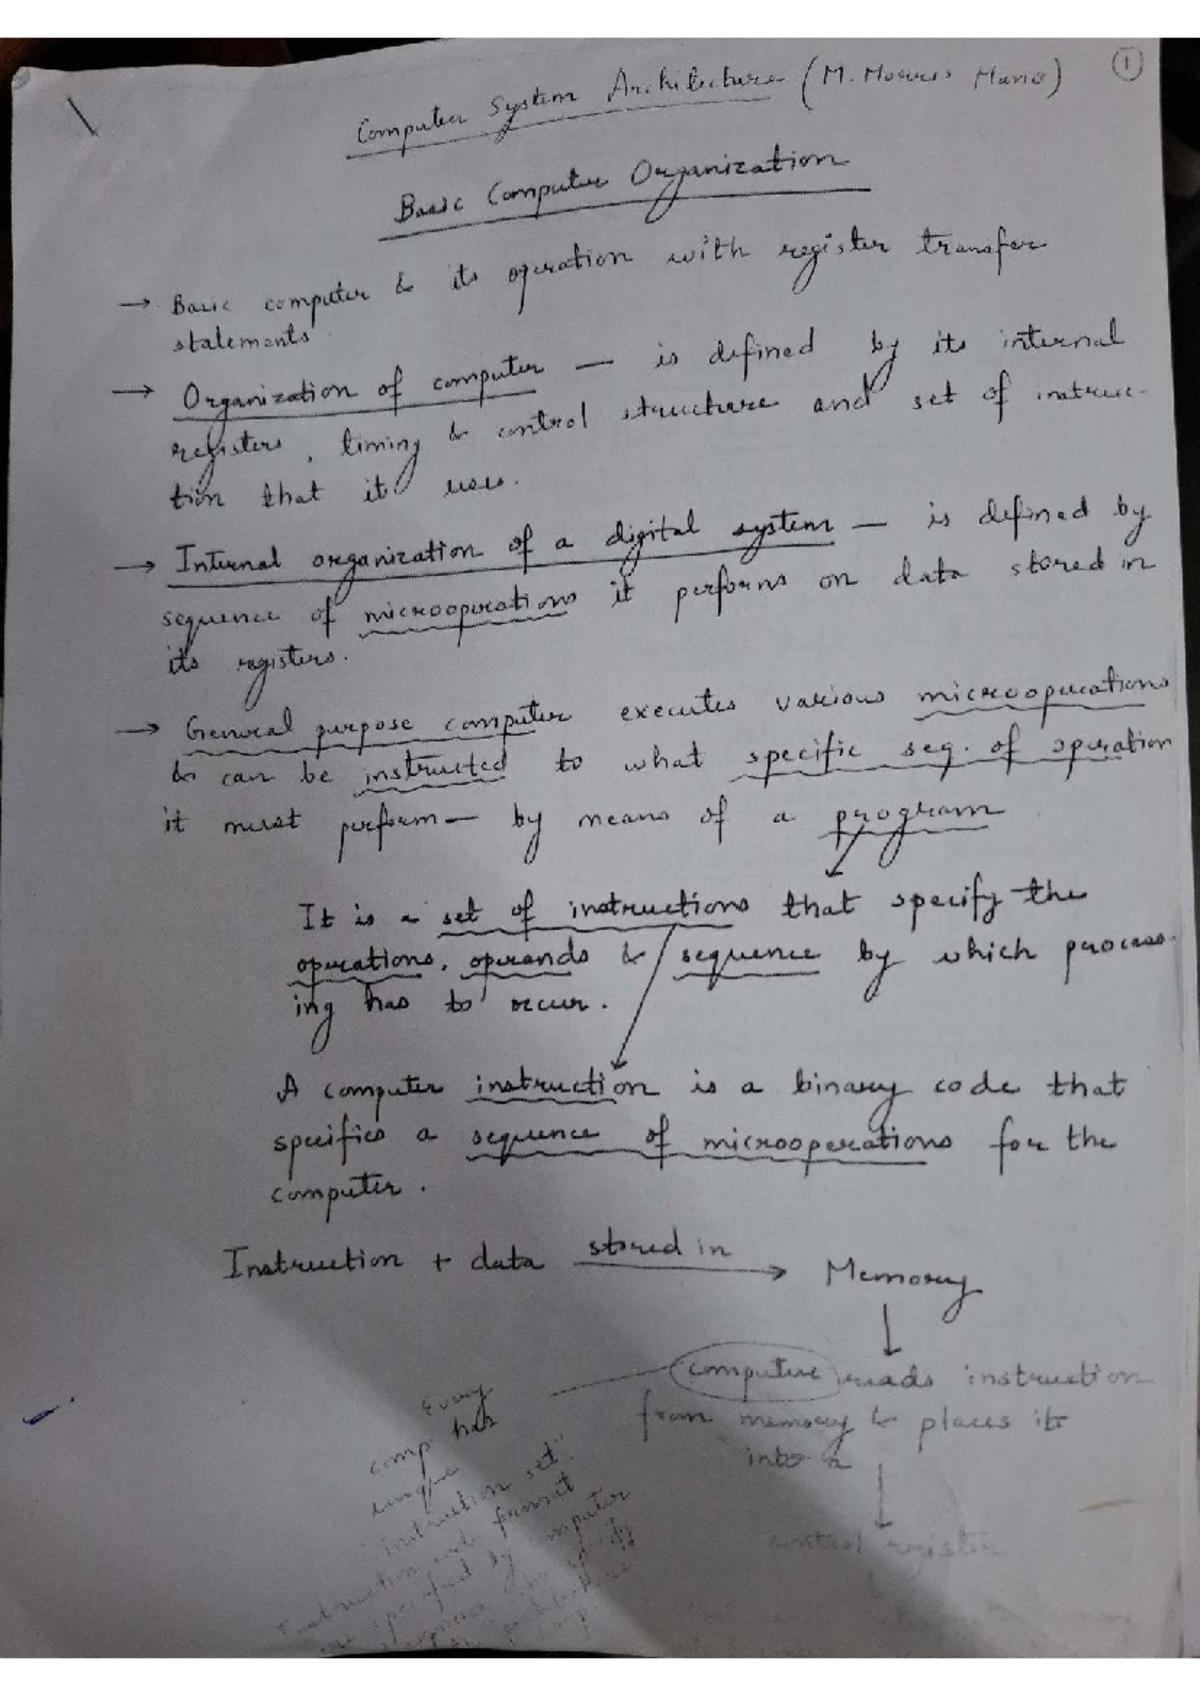 1
Computer System Architecture (M. Morris Mano)
Basic Computer Organization
→ Basic computer & its operation with register transfer
statements
→ Organization of computer — is defined by its internal
registers, timing & control structure and set of instruc-
tion that it uses.
→ Internal organization of a digital system — is defined by
sequence of microoperations it performs on data stored in
its registers.
→ General purpose computer executes various microoperations
& can be instructed to what specific seq. of operation
it must perform — by means of a program
It is a set of instructions that specify the
operations, operands & sequence by which process-
ing has to occur.
A computer instruction is a binary code that
specifies a sequence of microoperations for the
computer.
Instruction + data stored in → Memory
computer reads instruction
from memory & places it
into a
control register
Every
comp. has
unique
instruction set.
Instruction code format
specified by computer